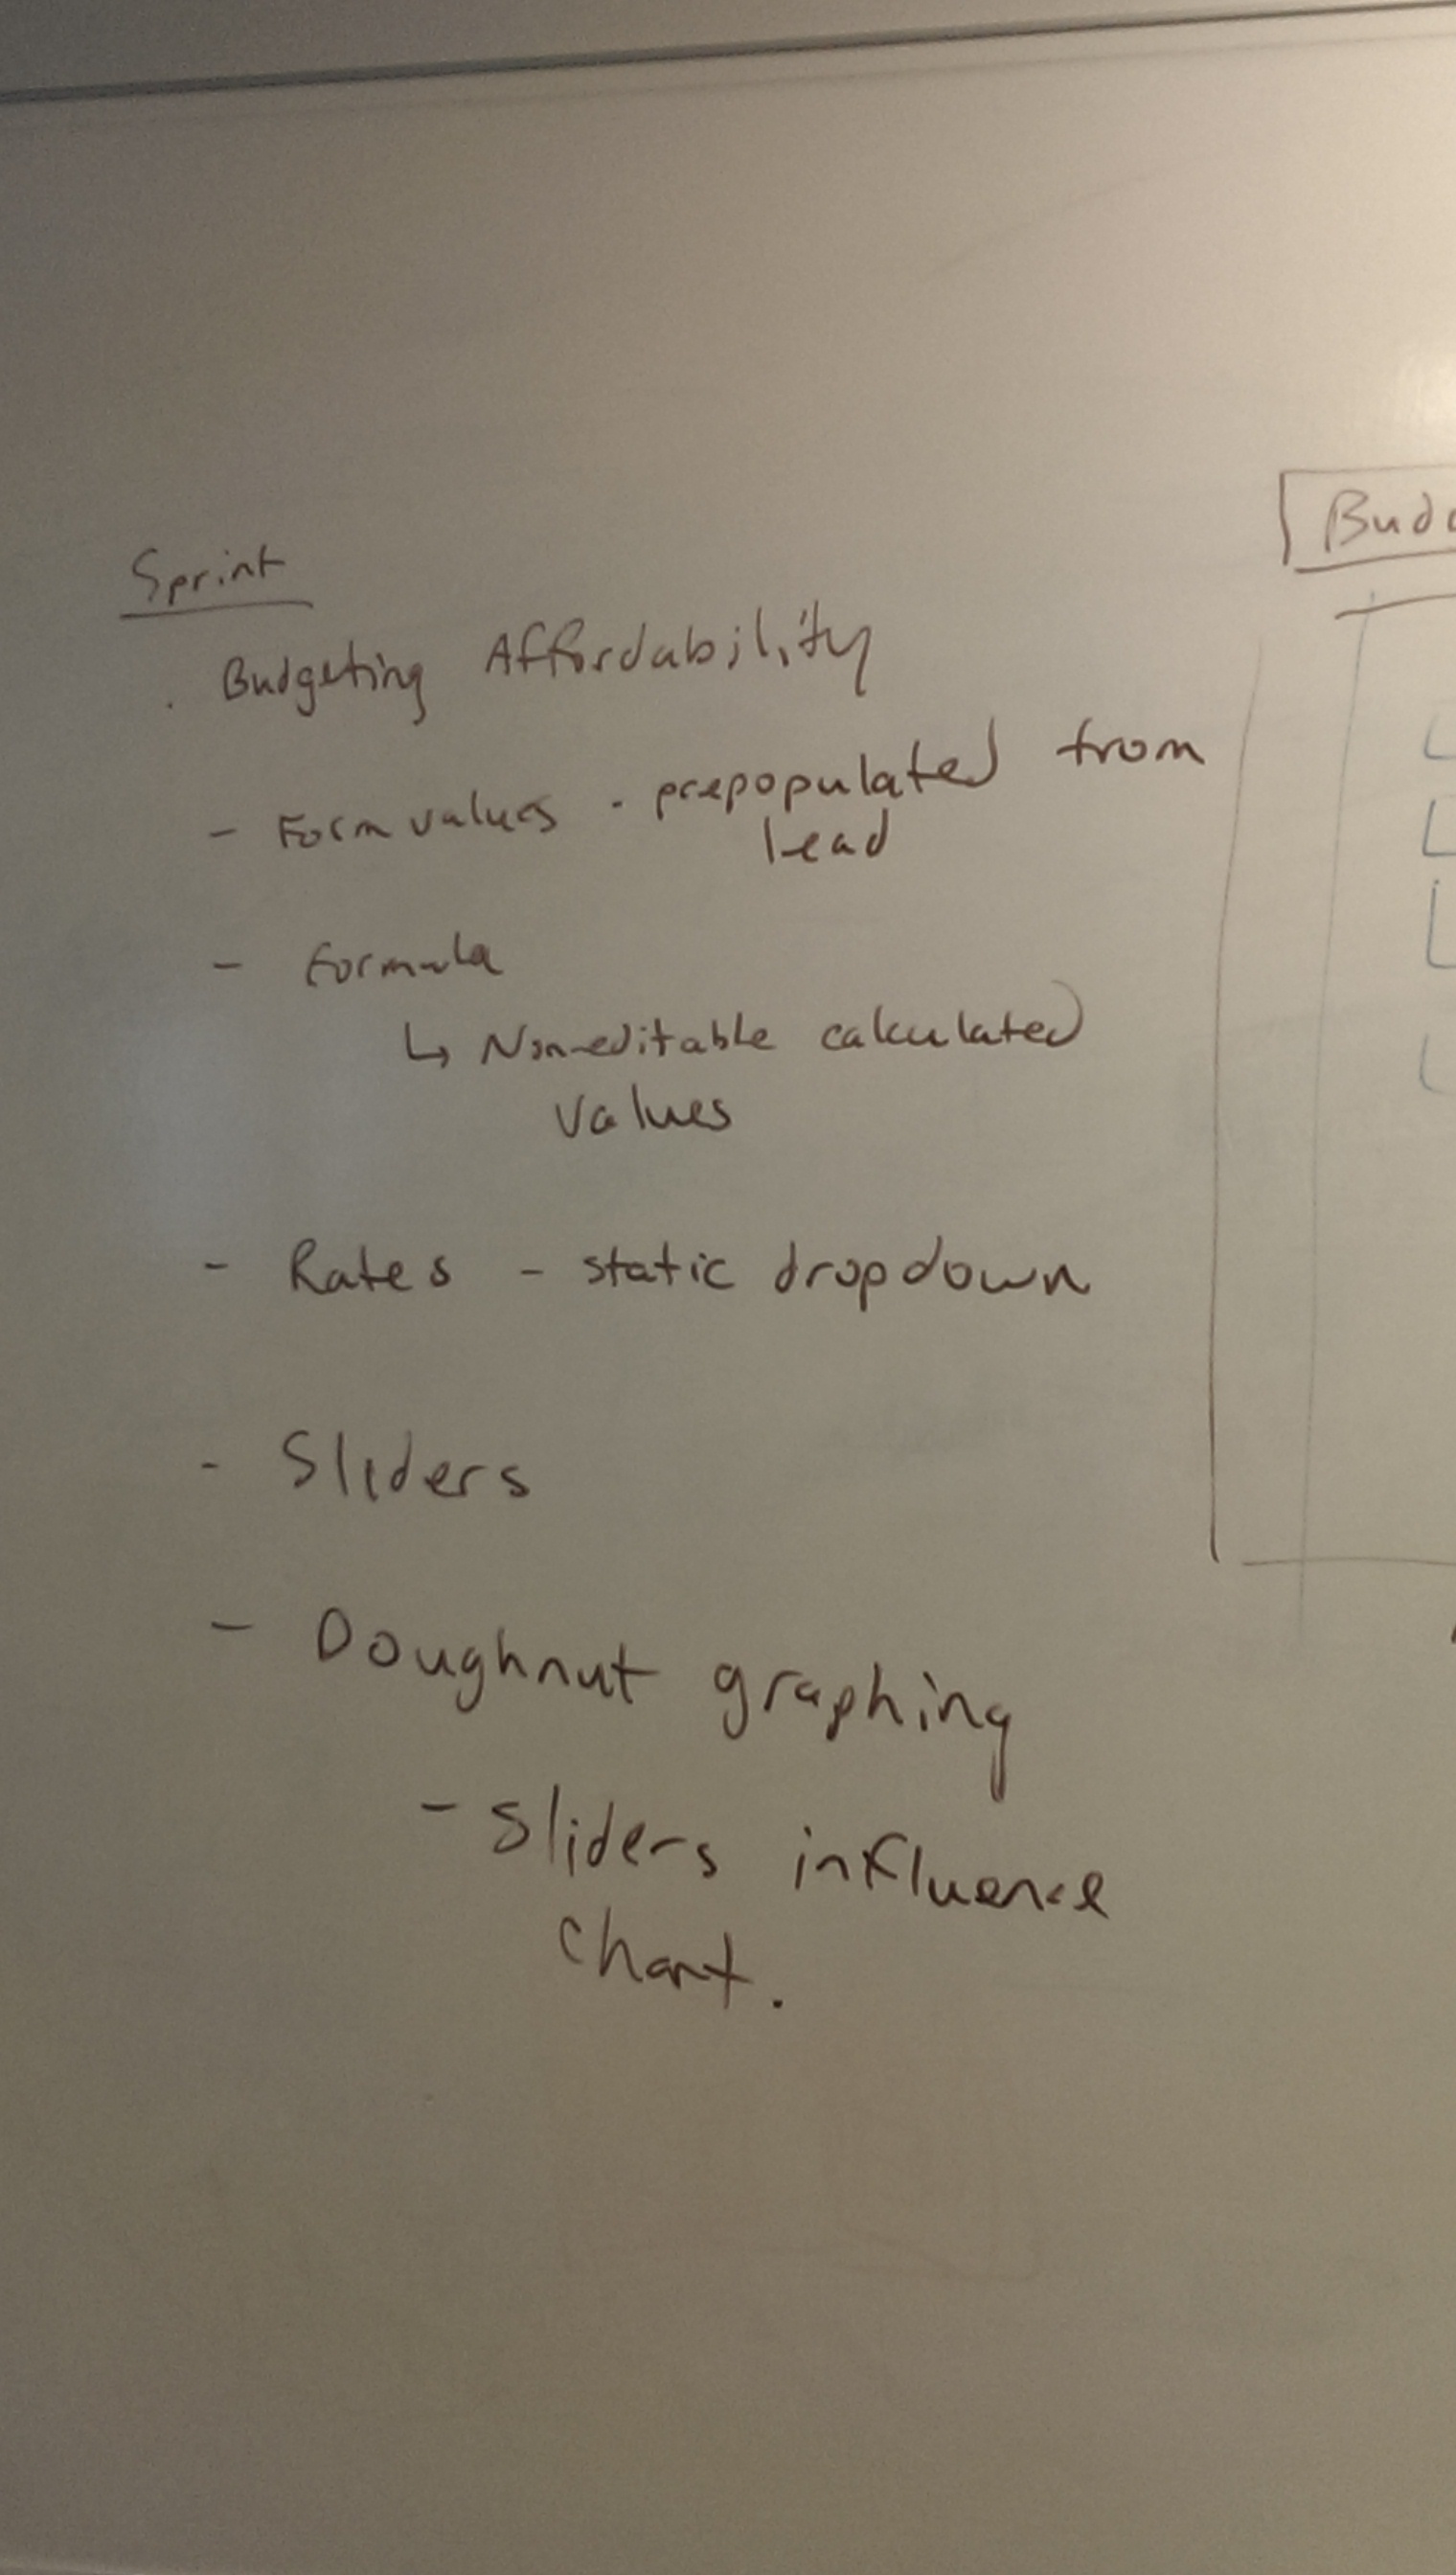 Sprint
. Budgeting Affordability
- Form values - prepopulated from
lead
- Formula
↳ Non-editable calculated
values
- Rates - static dropdown
- Sliders
- Doughnut graphing
- Sliders influence
chart.